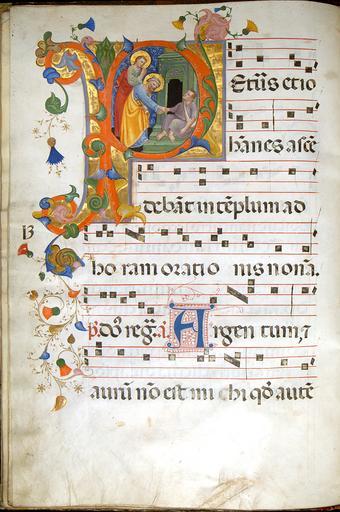 P Etrus et io
hānes ascē
debāt in tēplum ad
13
ho ram oratio nis nona.
p̄. dō. reḡ. a. Argen tum, ⁊
aurū nō est mi chi qđ autē